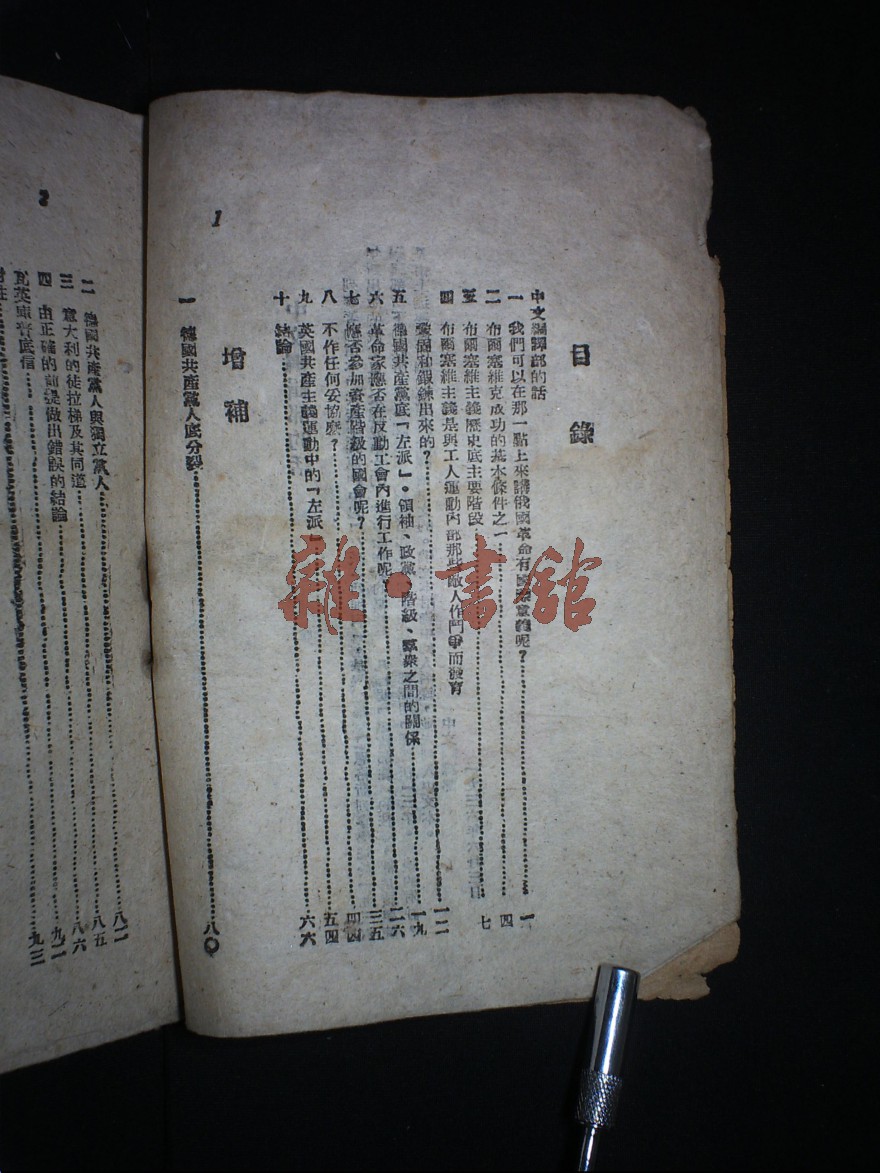 1
目錄
中文編譯部的話
一 我們可以在那一點上來講俄國革命有國際意義呢？ 一
二 布爾塞維克成功的基本條件之一 四
三 布爾塞維主義歷史底主要階段 七
四 布爾塞維主義是與工人運動內部那些敵人作鬥爭而發育
鞏固和鍛鍊出來的？ 一二
五 德國共產黨底「左派」。領袖、政黨、階級、羣衆之間的關係 一九
六 革命家應否在反動工會內進行工作呢？ 二六
七 應否參加資產階級的國會呢？ 三五
八 不作任何妥協麽？ 四四
九 英國共產主義運動中的「左派」 五四
十 結論 六六
增補
一 德國共產黨人底分裂 八〇
2
二 德國共產黨人與獨立黨人 八二
三 意大利的徒拉梯及其同道 八五
四 由正確的前提做出錯誤的結論 八六
九二
瓦英庫普底信 九三
雜·書館